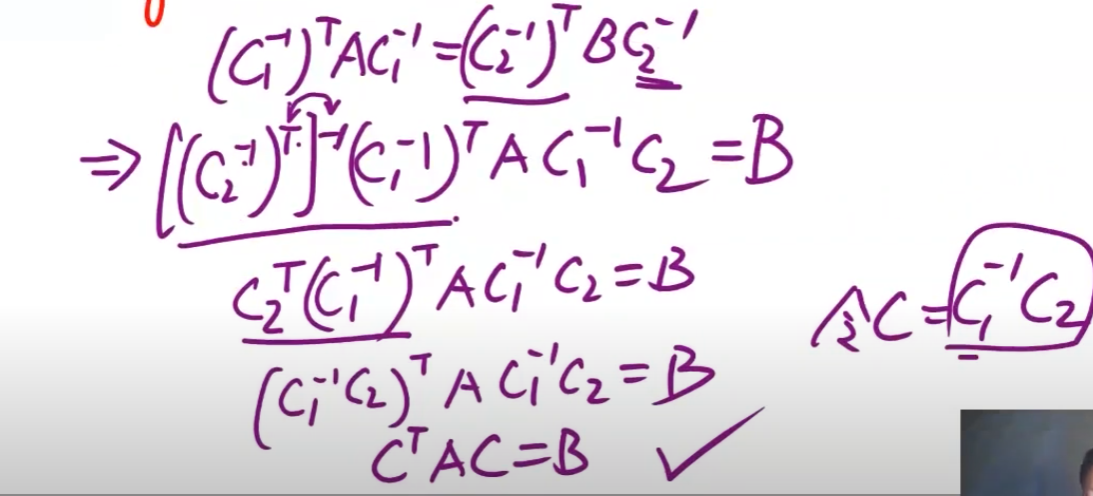 (C₁⁻¹)ᵀAC₁⁻¹=(C₂⁻¹)ᵀBC₂⁻¹
⇒[(C₂⁻¹)ᵀ]⁻¹(C₁⁻¹)ᵀAC₁⁻¹C₂=B
C₂ᵀ(C₁⁻¹)ᵀAC₁⁻¹C₂=B
令C=C₁⁻¹C₂
(C₁⁻¹C₂)ᵀAC₁⁻¹C₂=B
CᵀAC=B ✓